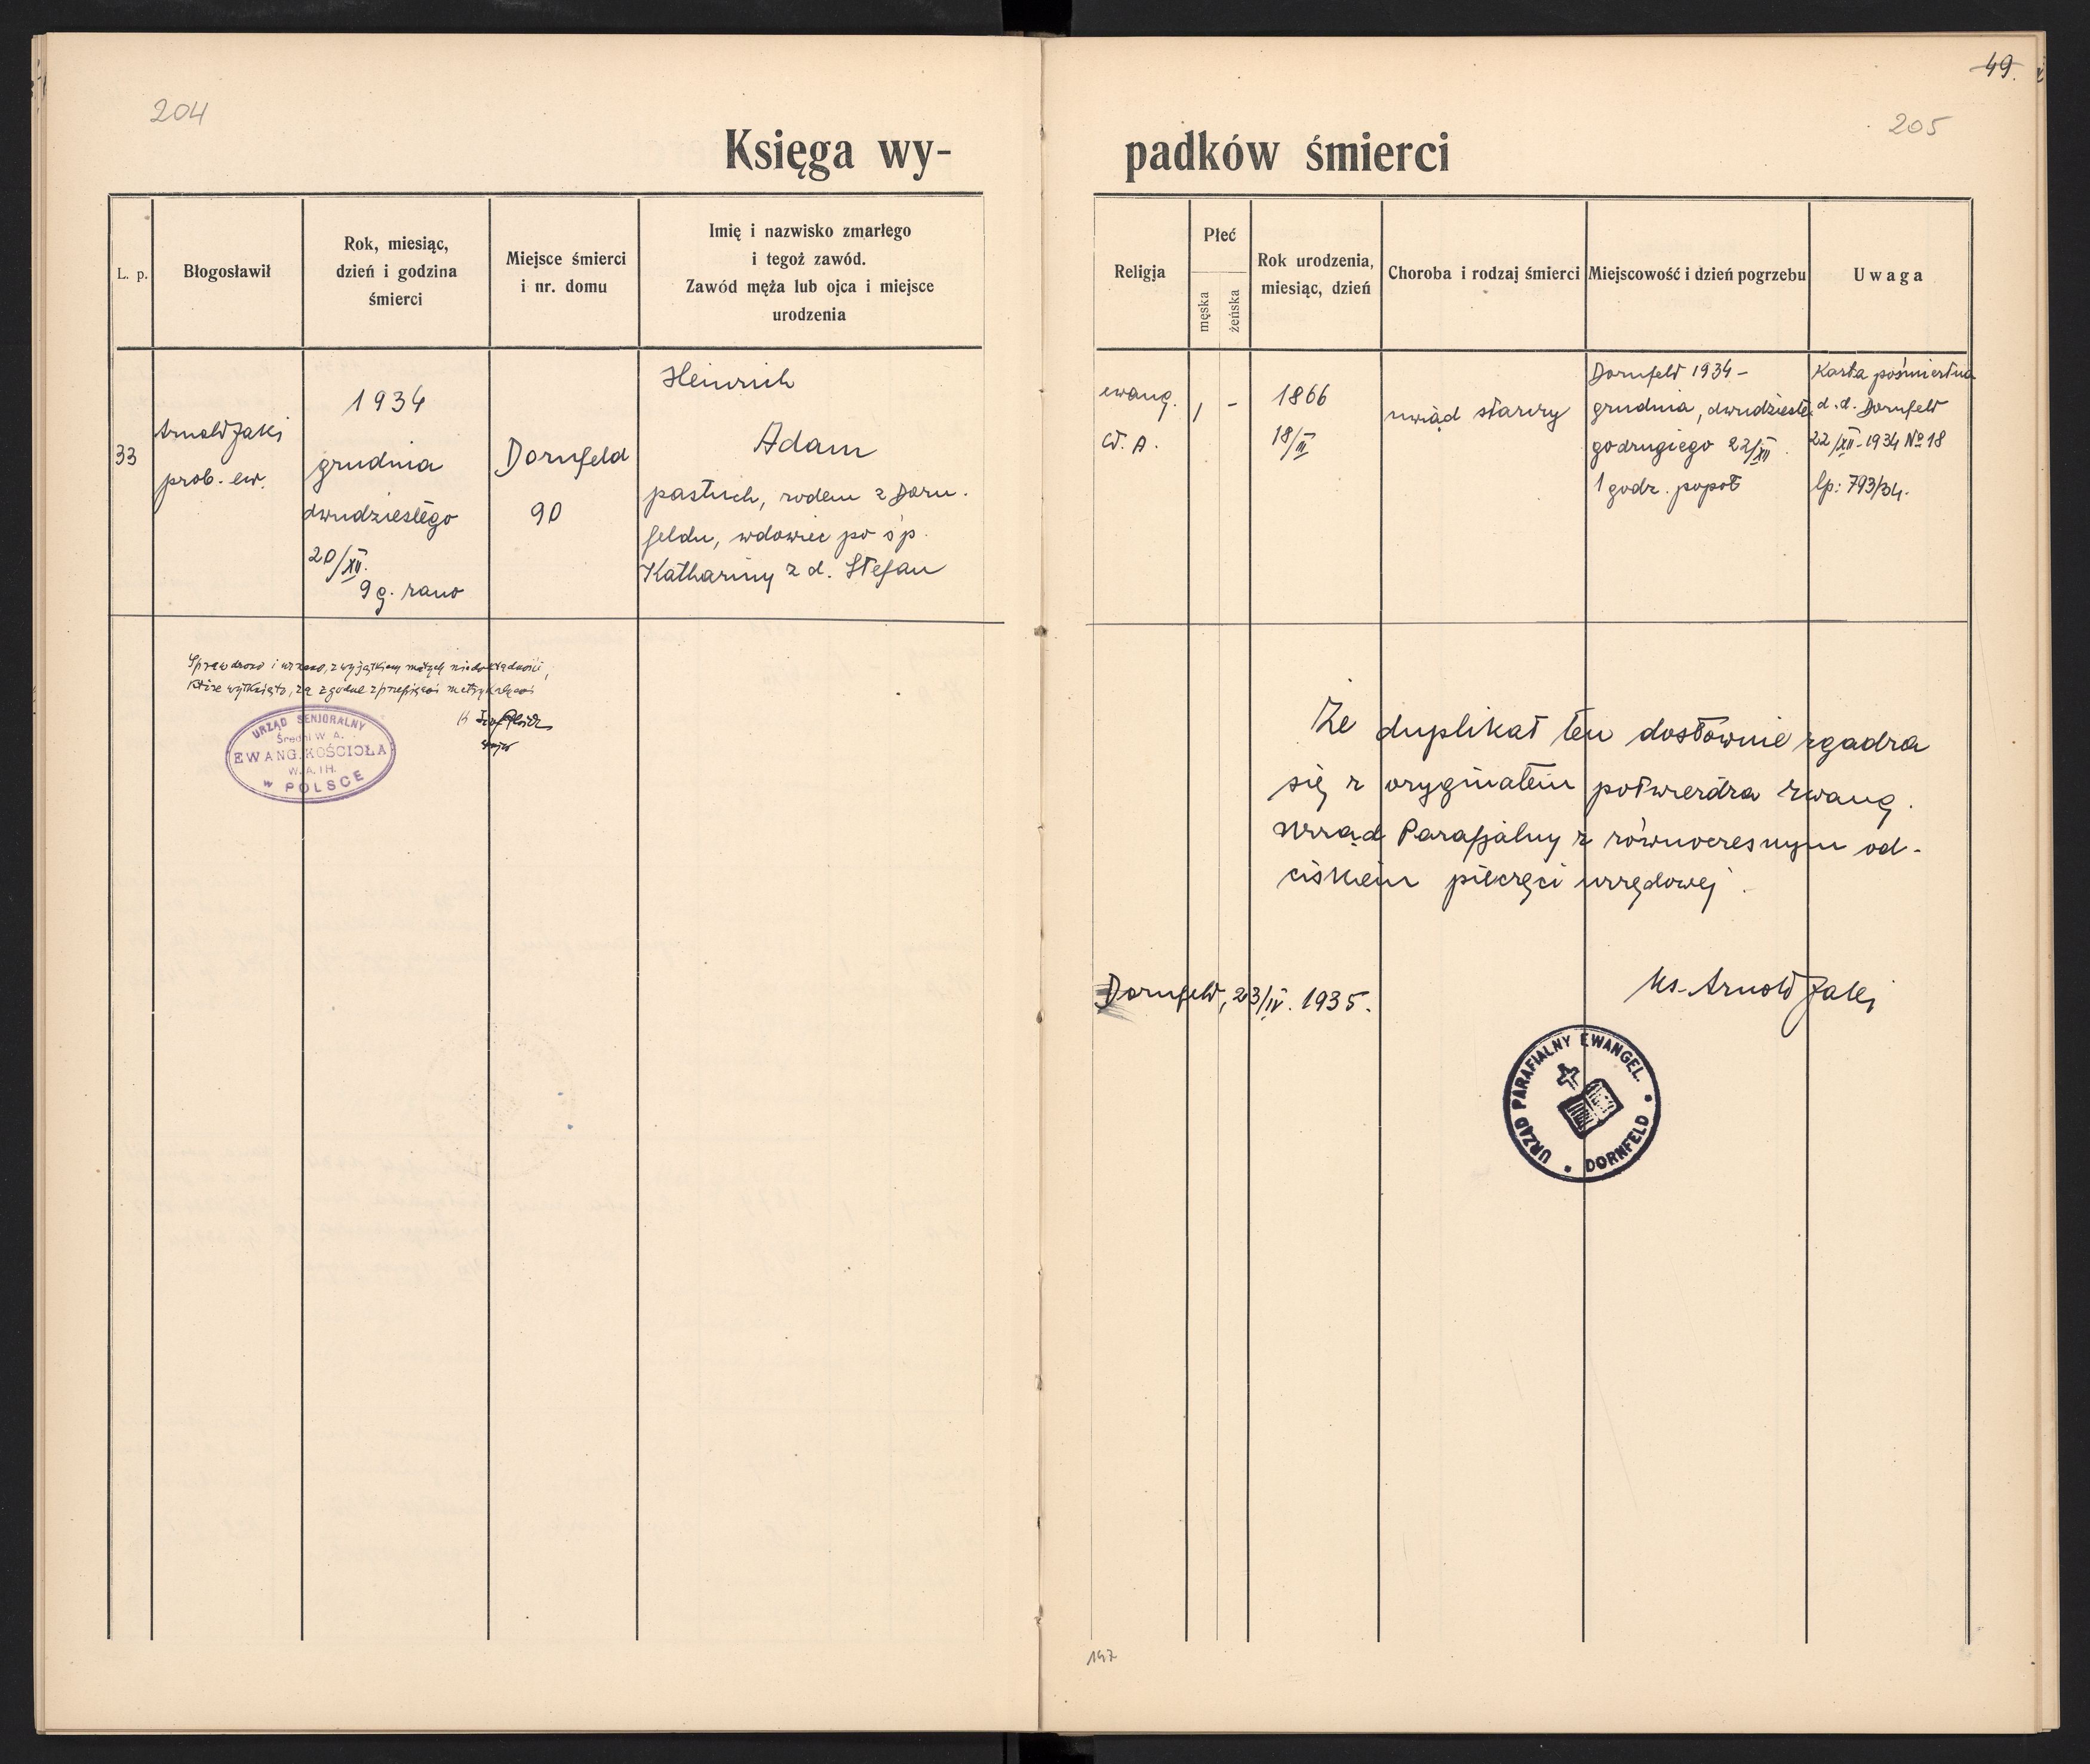 204
Księga wy-
L. p.
Błogosławił
Rok, miesiąc,
dzień i godzina
śmierci
Miejsce śmierci
i nr. domu
Imię i nazwisko zmarłego
i tegoż zawód.
Zawód męża lub ojca i miejsce
urodzenia
33
Arnold Jaki
prob. ew.
1934
grudnia
dwudziestego
20/XII.
9 g. rano
Dornfeld
90
Heinrich
Adam
pastuch, rodem z Dorn.
feldu, wdowiec po ś p.
Kathariny z d. Stefan
Sprawdzono i uznano, z wyjątkiem małych niedokładności,
które wytknięto, za zgodne z przepisami metrykalnemi
URZĄD SENJORALNY
Średni W. A.
EWANG. KOŚCIOŁA
W. A. I H.
w POLSCE
49.
205
padków śmierci
Religja
Płeć
męska
żeńska
Rok urodzenia,
miesiąc, dzień
Choroba i rodzaj śmierci
Miejscowość i dzień pogrzebu
Uwaga
ewang.
cł. A.
1
-
1866
18/II
uwiąd starczy
Dornfeld 1934 -
grudnia, dwudzieste
godrugiego 22/XII.
1 godz. popoł
Karta pośmiertna
d. d. Dornfeld
22/XII-1934 № 18
lp: 793/34.
Że duplikat ten dosłownie zgadza
się z oryginałem potwierdza Ewang.
Urząd Parafjalny z równoczesnym od-
ciskiem pieczęci urzędowej.
Dornfeld, 23/IV. 1935.
Ks. Arnold Jaki
URZĄD PARAFIALNY EWANGEL.
DORNFELD
147